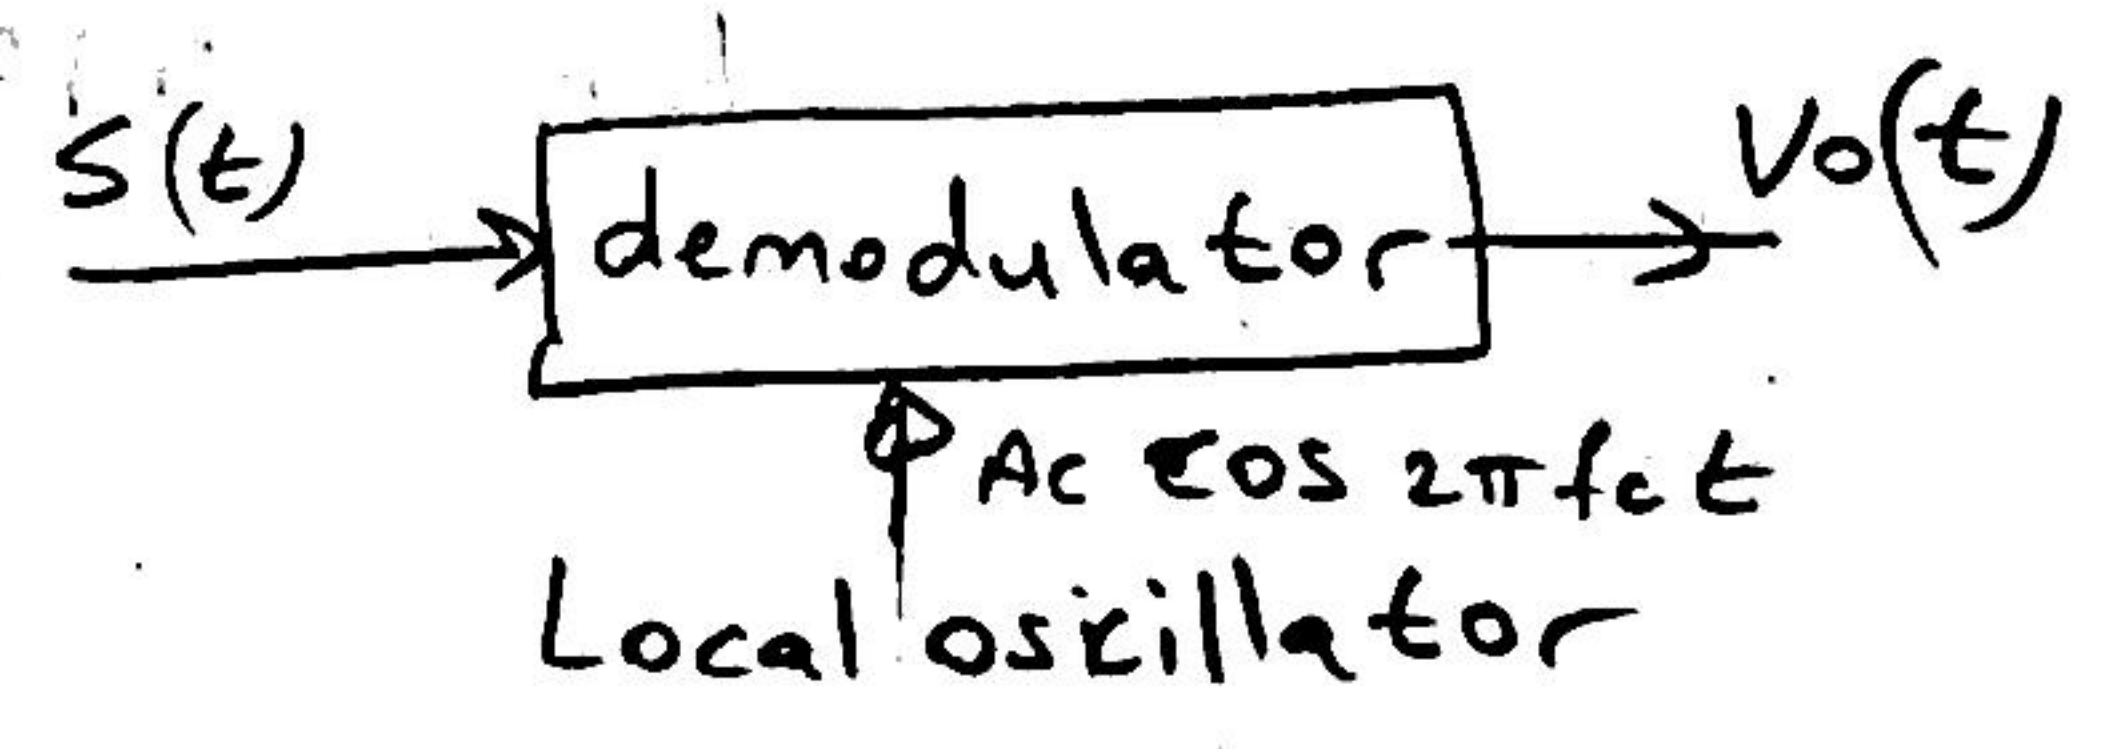 S(t)
demodulator
Vo(t)
Ac cos 2πfct
Local oscillator